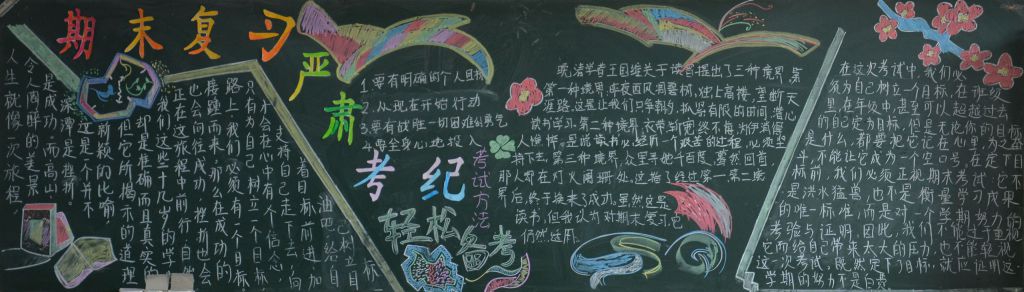 期末复习
严肃考纪
轻松备考
考试方法
人生就像一次旅程，
令人陶醉的美景
是成功，而高山
深潭是挫折。
这是个新颖的比喻
但它所揭示的道理
却是准确而且真实的
我们这些十几岁的学生
正在这旅程中前行，自然
也会向往成功，挫折也会
路上，我们必须有一个目标
只有为自己树立一个目标，
才会在心中有个信念，
支持自己走下去，向
着目标前进
1.要有明确的个人目标
2.从现在开始行动
3.要有战胜一切困难的勇气
4.要全身心地投入
晚清学者王国维关于读书提出了三种境界，第
一种境界，昨夜西风凋碧树，独上高楼，望断天
涯路，这是让我们只争朝夕，抓紧有限的时间，潜心
读书学习。第二种境界，衣带渐宽终不悔，为伊消得
人憔悴，是说读书必须经一个艰苦的过程，必须坚
持下去，第三种境界，众里寻他千百度，蓦然回首，
那人却在灯火阑珊处，这指了经过第一、第二境
界后，终于换来了成功，虽然这是
读书，但我认为对期末复习它
仍然适用。
在这次考试中，我们必
须为自己树立一个目标，在班级
里，在年级中，甚至可以超越过去
的自己定为目标，但是无论你的目标
是什么，都要把它记在心里，为之奋
斗，不能让它成为一个空口号，在定下目
标前，我们必须正视期末考试，它不
是洪水猛兽，也不是衡量你成功
的唯一标准，而是对一个学期努力的
考验与证明，因此，我们不能过重
它而给自己带来太大的压力，也不能轻视
这一次考试，既然定下了目标，就应让这一
学期的努力不是白费